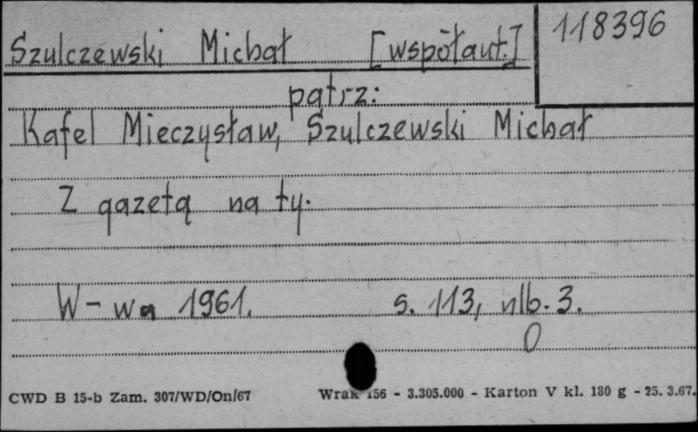 Szulczewski Michał [współaut.] 118396
patrz:
Kafel Mieczysław, Szulczewski Michał
Z gazetą na ty.
W-wa 1961. s. 113, nlb. 3.
0
CWD B 15-b Zam. 307/WD/On/67 Wrak 156 - 3.305.000 - Karton V kl. 180 g - 25. 3.67.